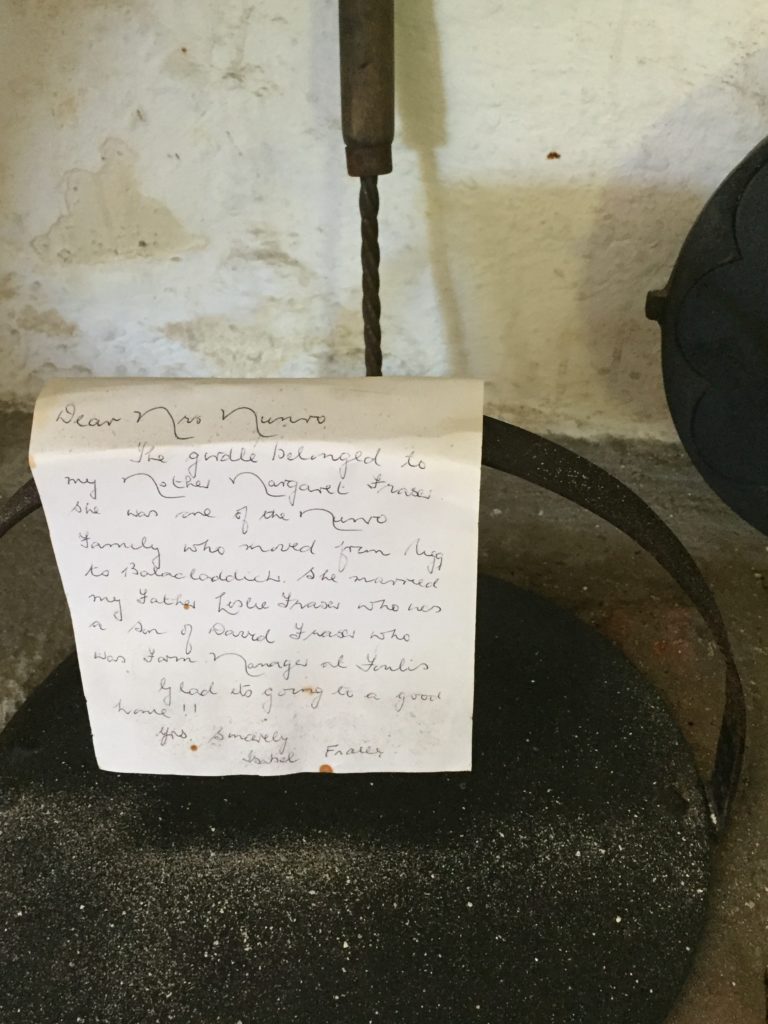 Dear Mrs Munro
The girdle belonged to
my Mother Margaret Fraser.
She was one of the Munro
Family who moved from Nigg
to Balacladdich. She married
my Father Leslie Fraser who was
a son of David Fraser who
was Farm Manager at Foulis
Glad its going to a good
home !!
Yrs. Sincerely
Isabel Fraser